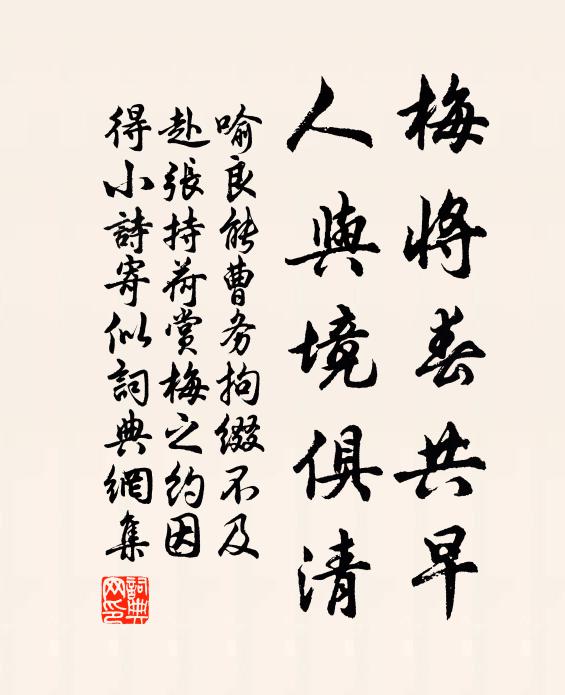 梅將春共早
人與境俱清
喻良能曹务拘缀不及
赴張持荷赏梅之约因
得小詩寄似詞典網集
詞典网印